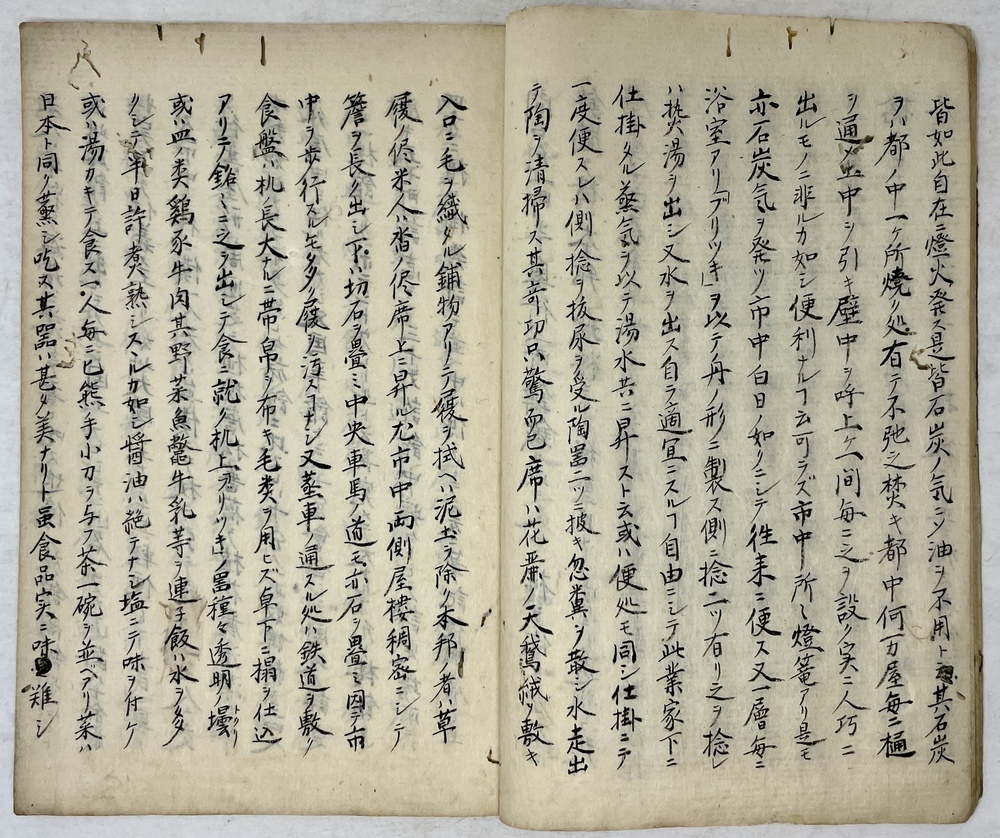 皆如此自在ニ燈火発ス是皆石炭ノ気ニシ油ヲ不用ト其石炭
ヲハ都ノ中一ケ所焼ノ処有テ不弛之焚キ都中何万屋毎ニ樋
ヲ通メ土中ヲ引キ壁中ヲ呼上ケ一間毎ニ之ヲ設ク実ニ人巧ニ
出ルモノニ非ルカ如シ便利ナルヿ云可ラズ市中所々燈篭アリ是モ
亦石炭気ヲ発ツ市中白日ノ如クニシテ徃来ニ便ス又一層毎ニ
浴室アリ「ブリツキ」ヲ以テ舟ノ形ニ製ス側ニ捻二ツ有リ之ヲ捻レ
ハ熱湯ヲ出シ又水ヲ出ス自ラ適宜ニスルヿ自由ニシテ此業家下ニ
仕掛タル蒸気ヲ以テ湯水共ニ昇ストス云或ハ便処モ同シ仕掛ニテ
一度便スレハ側ノ捻ヲ抜尿ヲ受ル陶器二ツニ披キ忽糞ヲ散シ水走出
テ陶ヲ清掃ス其奇巧只驚而已席ハ花麗ノ天鵞絨ヲ敷キ
入口ニ毛ヲ織タル鋪物アリテ履ヲ拭ヘハ泥土ヲ除ク本邦ノ者ハ草
履ノ侭米人ハ沓ノ侭席上ニ昇ル尤市中両側屋楼稠密ニシテ
簷ヲ長ク出シ下ハ切石ヲ畳ミ中央車馬ノ道モ亦石ヲ畳ミ因テ市
中ヲ歩行スル毛多ク履ヲ汚スヿナシ又蒸車ノ通スル処ハ鉄道ヲ敷ク
食盤ハ机ノ長大ナルニ帯帛ヲ布キ毛類ヲ用ヒズ卓下ニ搨ヲ仕込
アリテ銘々ニ之ヲ出シテ食ニ就ク机上「ブリツキ」ノ器種々透明ノ壜トクリ
或ハ皿類鶏豕牛肉其野菜魚鼈牛乳等ヲ連子飯ハ水ヲ多
クシテ半日許煮熟シスルカ如シ醤油ハ絶テナシ塩ニテ味ヲ付ケ
或ハ湯カキテ食ス一人毎ニ匕熊手小刀ヲ与フ茶一碗ヲ並ヘアリ菜ハ
日本ト同ク蒸シ吃ス其器ハ甚タ美ナリト虽食品実ニ味難シ